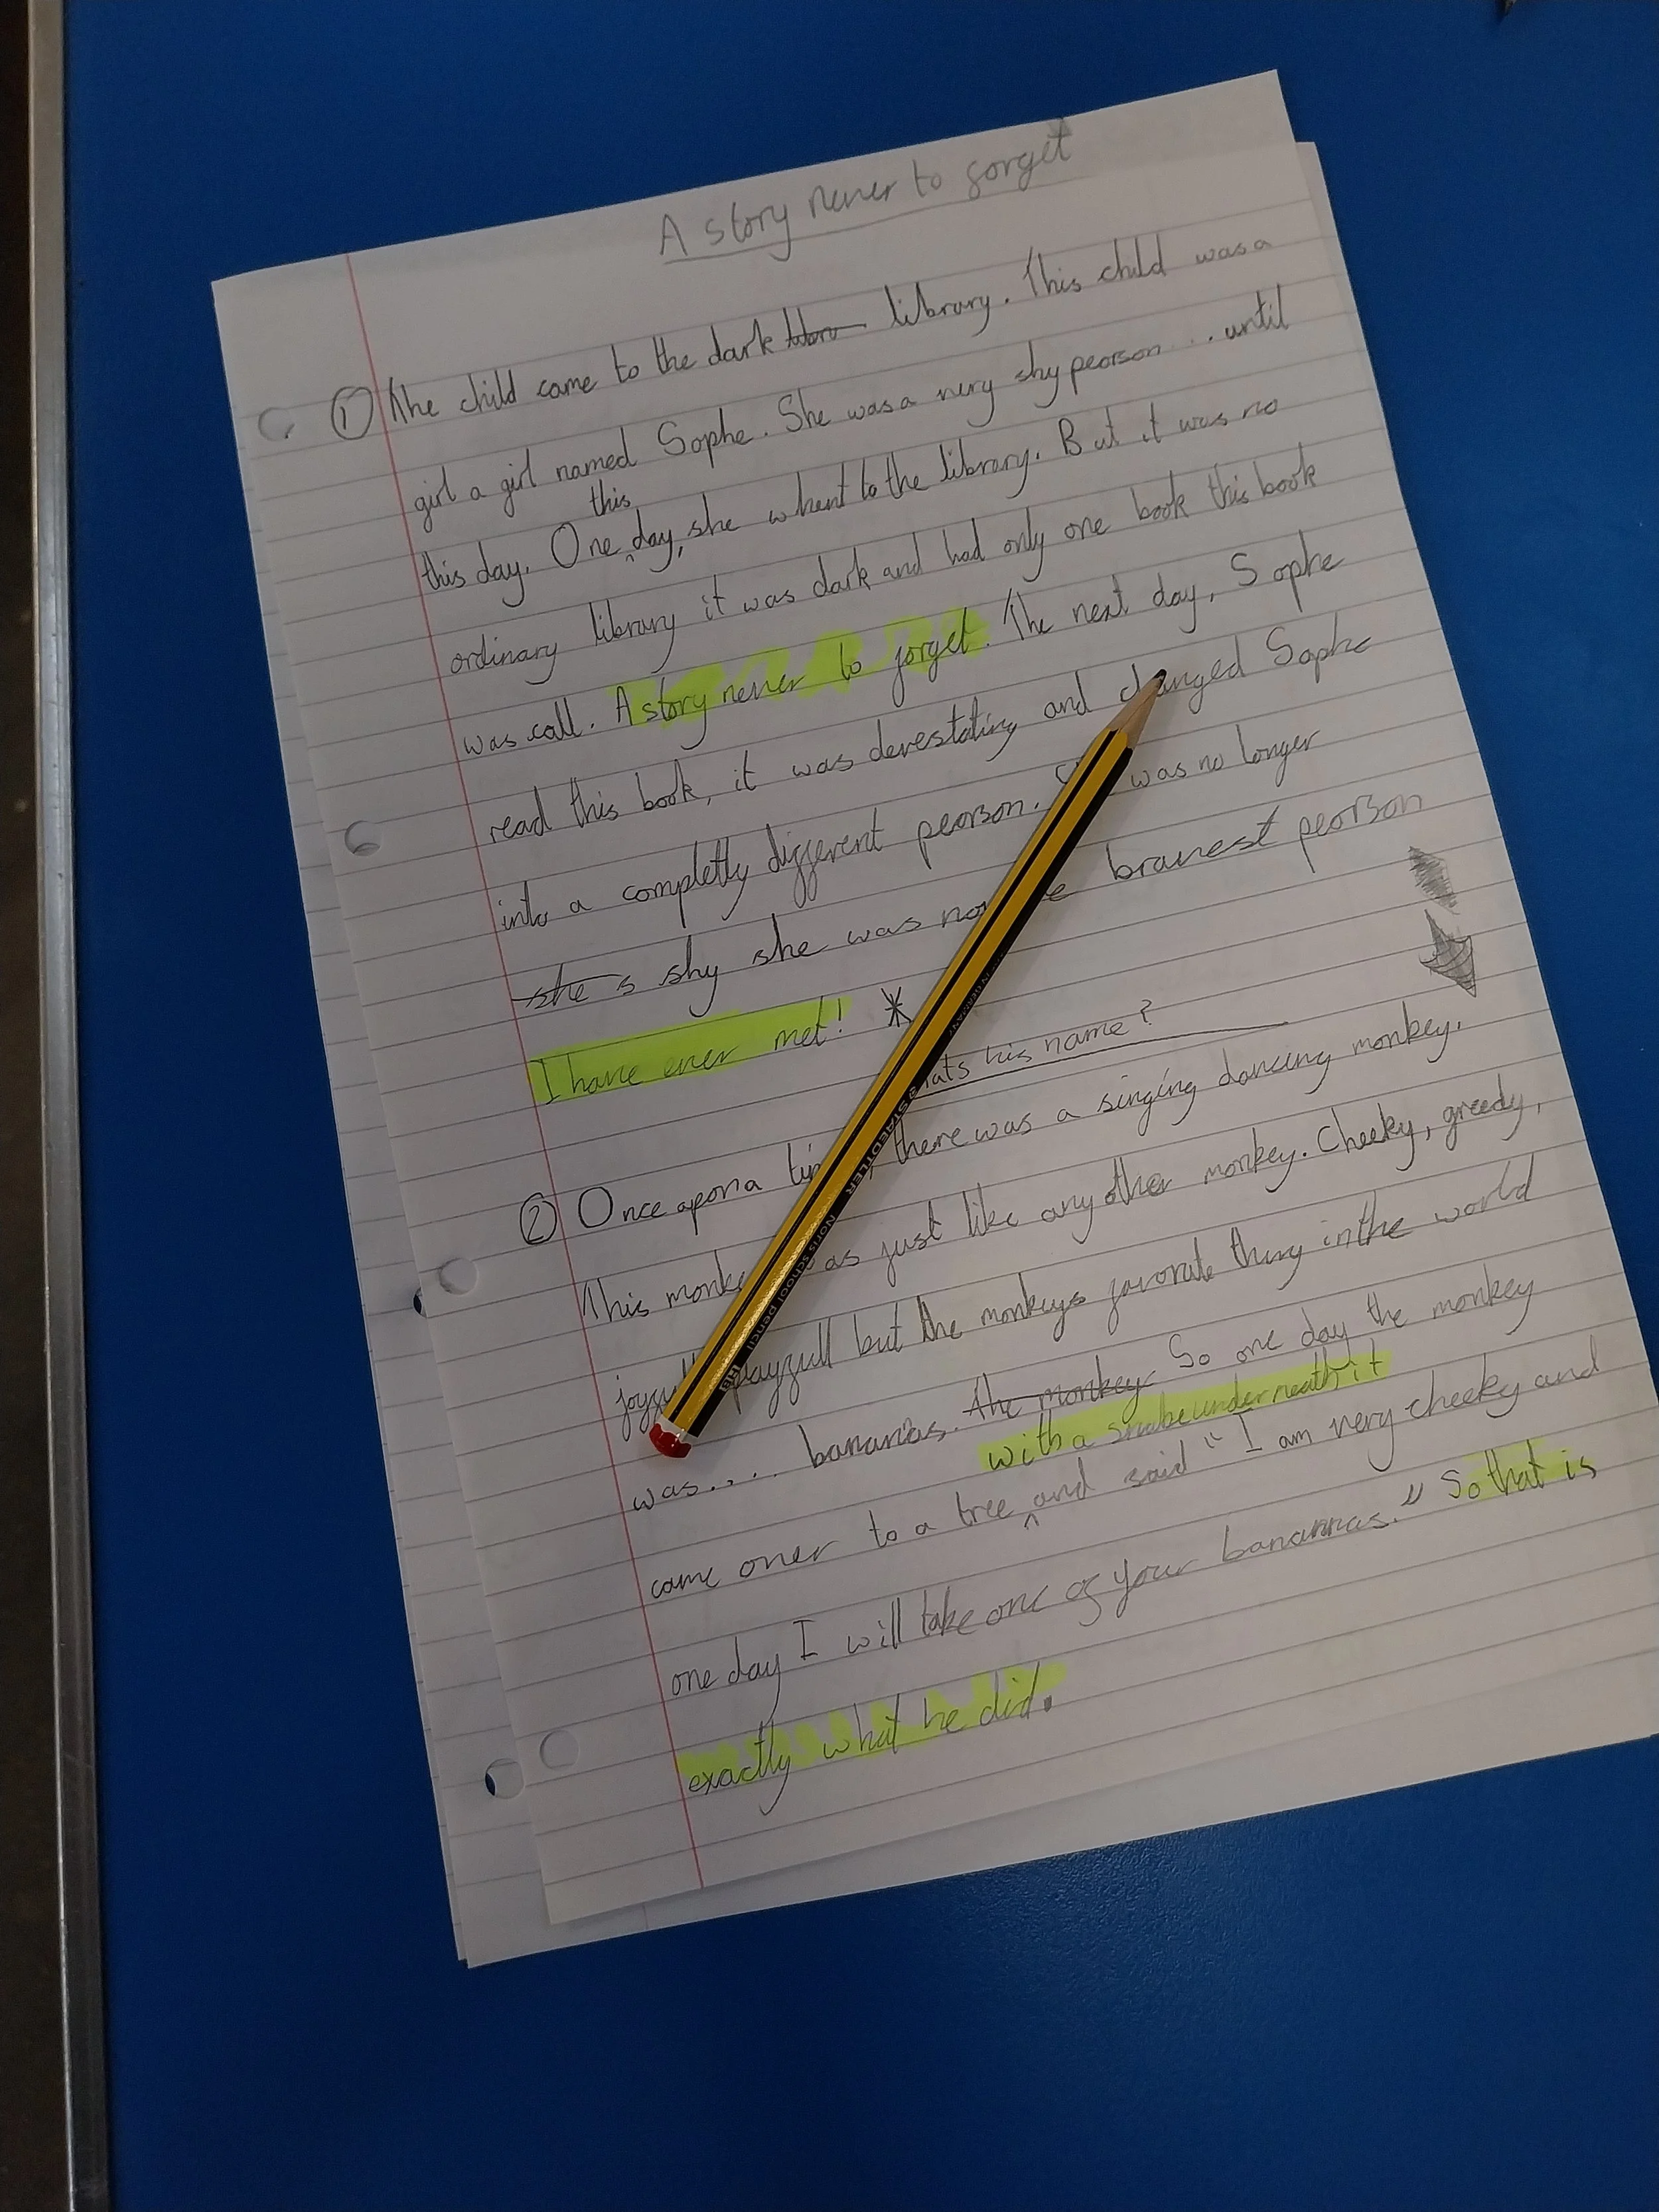 A story never to forget
① The child came to the dark libra library. This child was a
girl a girl named Sophe. She was a very shy peorson ... until
this
this day. One day, she whent to the library. But it was no
ordinary library it was dark and had only one book this book
was call. A story never to forget. The next day, Sophe
read this book, it was devestating and changed Sophe
into a completly different peorson. was no longer
she s shy she was bravest peorson
I have ever met! *
his name?
② Once apon a there was a singing dancing monkey.
This just like any other monkey. Cheeky, greedy,
but the monkeys favorate thing in the world
was.... bananas. The monkey So one day the monkey
with a snake underneath it
came over to a tree and said " I am very cheeky and
one day I will take one of your banannas." So that is
exactly what he did.
STAEDTLER Noris school pencil HB